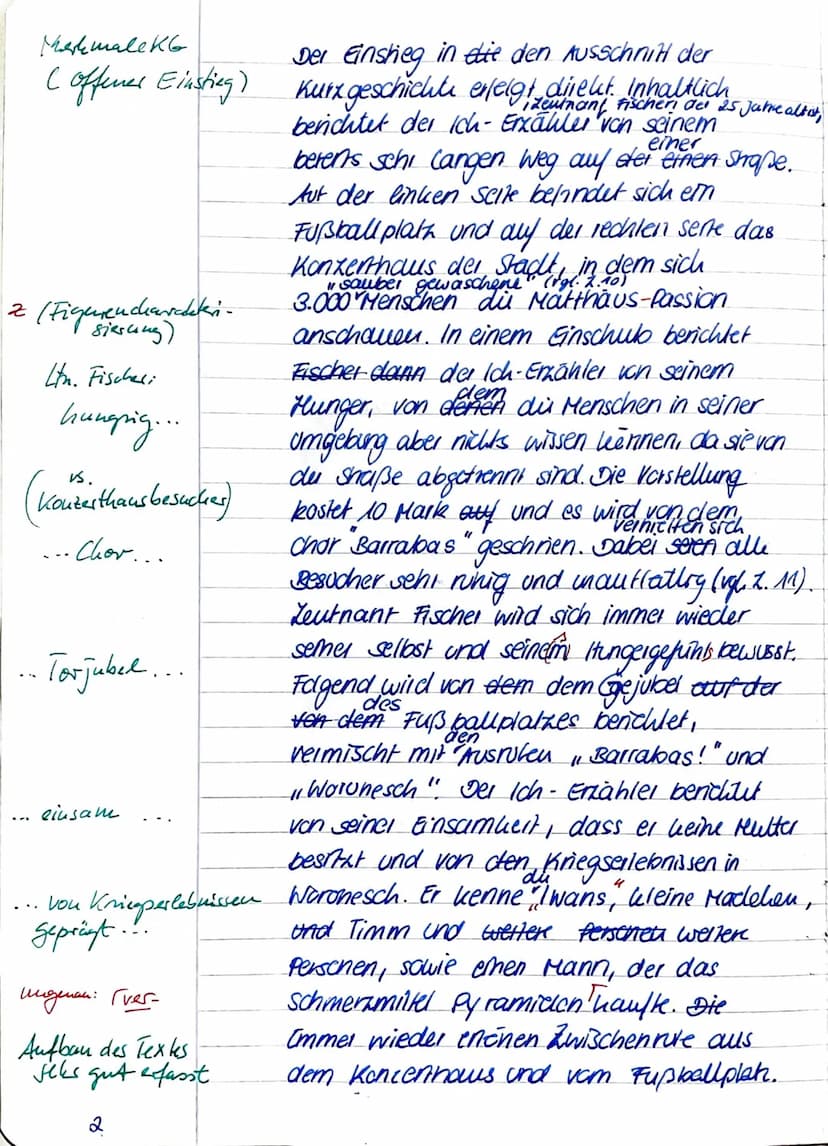 Merkmale KG
(offener Einstieg)
Der Einstieg in die den Ausschnitt der
Kurzgeschichte erfolgt direkt. Inhaltlich
, Leutnant Fischer der 25 Jahre alt ist,
berichtet der Ich-Erzähler von seinem
einer
bereits sehr langen Weg auf der einen Straße.
Auf der linken Seite befindet sich ein
Fußballplatz und auf der rechten Seite das
Konzerthaus der Stadt, in dem sich
"sauber gewaschene" (vgl. Z. 10)
z (Figurencharakteri-
sierung)
3.000 Menschen die Matthäus-Passion
anschauen. In einem Einschub berichtet
Ltn. Fischer:
Fischer dann der Ich-Erzähler von seinem
dem
hungrig...
Hunger, von denen die Menschen in seiner
Umgebung aber nichts wissen können, da sie von
vs.
(Konzerthausbesucher)
der Straße abgetrennt sind. Die Vorstellung
kostet 10 Mark auf und es wird von dem
verhielten sich
... Chor...
Chor "Barrabas" geschrien. Dabei seien alle
Besucher sehr ruhig und unauffällig (vgl. Z. 11).
Leutnant Fischer wird sich immer wieder
seiner selbst und seinem Hungergefühls bewusst.
... Torjubel...
Folgend wird von dem dem Gejubel auf der
des
von dem Fußballplatzes berichtet,
den
vermischt mit Ausrufen „Barrabas!" und
„Woronesch". Der Ich-Erzähler berichtet
... einsam ...
von seiner Einsamkeit, dass er keine Mutter
besitzt und von den Kriegserlebnissen in
die
... von Kriegserlebnissen
geprägt...
Woronesch. Er kenne „Iwans", kleine Mädchen,
und Timm und weitere Personen weitere
Personen, sowie einen Mann, der das
ungenau: ver-
Schmerzmittel Pyramidon kaufte. Die
Aufbau des Textes
sehr gut erfasst
Immer wieder ertönen Zwischenrufe aus
dem Konzerthaus und vom Fußballplatz.
2